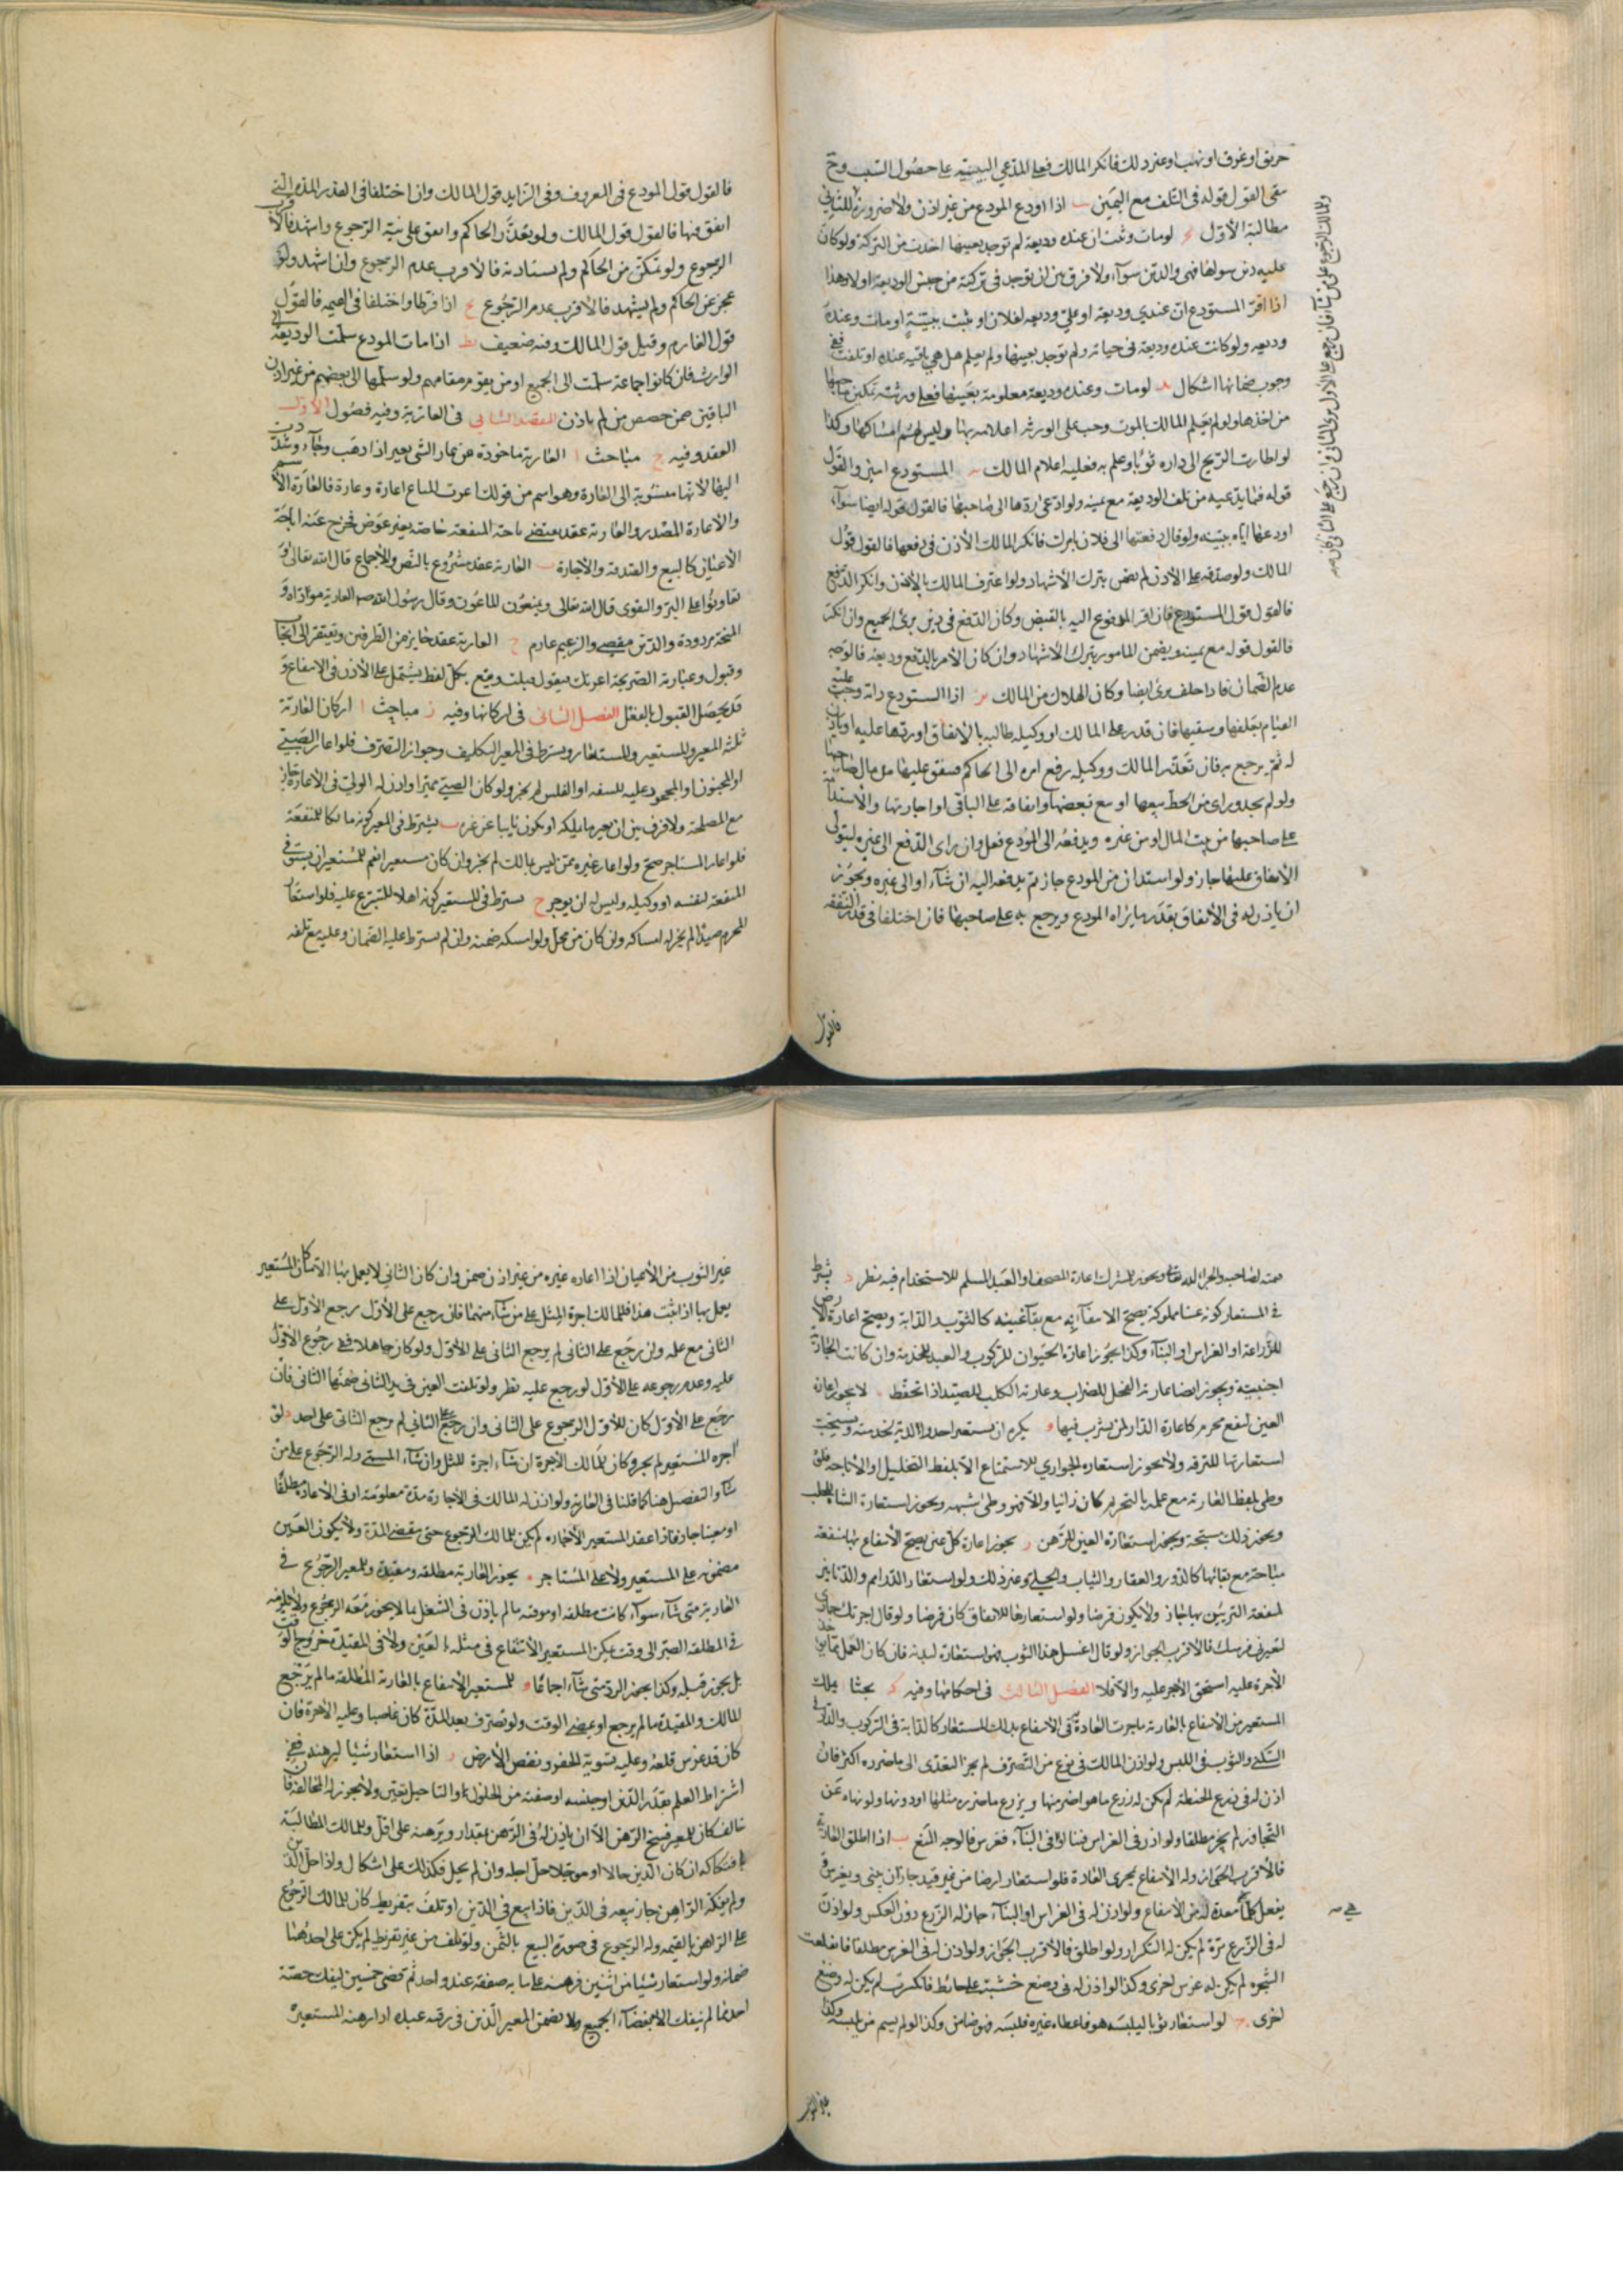 حريق او غرق او نهب او غير ذلك فانكر المالك فعلى المدعي البينة على حصول السبب ومع
القول قوله في التلف مع اليمين اذا اودع المودع من غير اذن ولا ضرورة فللثاني
مطالبة الاول لو مات وثبت ان عنده وديعة لم توجد بعينها اخذت من التركة ولو كان
عليه دين سواها فهي والدين سواء ولا فرق بين ان يوجد في تركته من جنس الوديعة اولا وهذا
اذا اقر المستودع ان عندي وديعة او علي وديعة لفلان او ثبت ببينة او مات وعنده
وديعة ولو كانت عنده وديعة في حياته ولم توجد بعينها ولم يعلم هل هي باقية عنده او تلفت ففي
وجوب ضمانها اشكال لو مات وعنده وديعة معلومة بعينها فعلى ورثته تمكين صاحبها
من اخذها ولو لم يعلم المالك بالموت وجب على الورثة اعلامه بها وليس لهم امساكها وكذا
لو اطارت الريح الى داره ثوبا وعلم به فعليه اعلام المالك المستودع امين والقول
قوله فيما يدعيه من تلف الوديعة مع يمينه ولو ادعى ردها الى صاحبها فالقول قوله ايضا سواء
اودعها اياه ببينة ولو قال دفعتها الى فلان بامرك فانكر المالك الاذن في دفعها فالقول قول
المالك ولو صدقه على الاذن لم يضمن بترك الاشهاد ولو اعترف المالك بالاذن وانكر الدفع
فالقول قول المستودع فان اقر المدفوع اليه بالقبض وكان الدفع في دين برئ الجميع وان انكر
فالقول قوله مع يمينه ويضمن المامور بترك الاشهاد وان كان الامر بالدفع وديعة فالوجه
عدم الضمان فاذا حلف برئ ايضا وكان الهلاك من المالك اذا استودع دابة وجب عليه
القيام بعلفها وسقيها فان قدر على المالك او وكيله طالبه بالانفاق او ردها عليه او ياذن
له ثم يرجع به فان تعذر المالك ووكيله رفع امره الى الحاكم فينفق عليها من مال صاحبها
ولو لم يجد وراى من الحظ بيعها او بيع بعضها وانفاقه على الباقي او اجارتها والاستدانة
على صاحبها من بيت المال او من غيره ويدفعه الى المودع فعل وان راى الدفع الى غيره ليتولى
الانفاق عليها جاز ولو استدان من المودع جاز ثم يدفعه اليه ان شاء او الى غيره ويجوز
ان ياذن له في الانفاق بقدر ما يراه المودع ويرجع به على صاحبها فان اختلفا في قدر النفقة
فالقول
فالقول قول المودع في المعروف وفي الزايد قول المالك وان اختلفا في القدر المدة التي
انفق فيها فالقول قول المالك ولو تعذر الحاكم وانفق على نية الرجوع واشهد فالاقرب
الرجوع ولو تمكن من الحاكم ولم يستاذنه فالاقرب عدم الرجوع وان اشهد ولو
عجز عن الحاكم ولم يشهد فالاقرب عدم الرجوع اذا فرط واختلفا في القيمة فالقول
قول الغارم وقيل قول المالك وفيه ضعيف اذا مات المودع سلمت الوديعة الى
الوارث فان كانوا جماعة سلمت الى الجميع او من يقوم مقامهم ولو سلمها الى بعضهم من غير اذن
الباقين ضمن حصص من لم ياذن المقصد الثاني في العارية وفيه فصول الاول
العقد وفيه مباحث ا العارية ماخوذة من عار الشي يعير اذا ذهب وجاء وشددت
الياء لانها منسوبة الى العارة وهو اسم من قولك اعرت المتاع اعارة وعارة فالعارة الاسم
والاعارة المصدر والعارية عقد يقتضي باحة المنفعة خاصة بغير عوض فخرج عنه اباحة
الاعيان كالبيع والصدقة والاجارة العارية عقد مشروع بالنص والاجماع قال الله تعالى و
تعاونوا على البر والتقوى قال الله تعالى ويمنعون الماعون وقال رسول الله صم العارية مؤداة و
المنحة مردودة والدين مقضي والزعيم غارم العارية عقد جايز من الطرفين ويفتقر الى ايجاب
وقبول وعبارته الصريحة اعرتك فيقول قبلت ويقع بكل لفظ يشتمل على الاذن في الانتفاع و
قد يحصل القبول بالفعل الفصل الثاني في اركانها وفيه مباحث ا اركان العارية
ثلثة المعير والمستعير والمستعار ويشترط في المعير التكليف وجواز التصرف فلو اعار الصبي
او المجنون او المحجور عليه للسفه او الفلس لم يجز ولو كان الصبي مميزا واذن له الولي في الاعارة جاز
مع المصلحة ولا فرق بين ان يعير ما يملكه او يكون نايبا عن غيره يشترط في المعير كونه مالكا للمنفعة
فلو اعار المستاجر صح ولو اعار غيره ممن ليس بمالك لم يجز وان كان مستعيرا نعم للمستعير ان يستوفي
المنفعة لنفسه او وكيله وليس له ان يوجر يشترط في المستعير كونه اهلا للتبرع عليه فلو استعار
المحرم صيدا لم يجز له امساكه وان كان من محل ولو امسكه ضمنه وان لم يشترط عليه الضمان وعليه مع تلفه
قيمته لصاحبه والجزاء لله تعالى ويجوز للمشرك اعارة المصحف او العبد المسلم للاستخدام فيه نظر يشترط
في المستعار كونه عينا مملوكة يصح الانتفاع به مع بقاء عينه كالثوب والدابة ويصح اعارة الارض
للزراعة او الغراس او البناء وكذا يجوز اعارة الحيوان للركوب والعبد للخدمة وان كانت الجارية
اجنبية ويجوز ايضا عارية الفحل للضراب وعارية الكلب للصيد اذا تحفظ لا يجوز اعارة
العين لنفع محرم كاعارة الدار لمن يشرب فيها يكره ان يستعير احد والديه لخدمته ويستحب
استعارتها للترفه ولا يجوز استعارة الجواري للاستمتاع الا بلفظ التحليل او الاباحة فلو
وطي بلفظ العارية مع علمه بالتحريم كان زانيا والا فهو وطي شبهة ويجوز استعارة الشاة للحلب
ويجوز ذلك سبحة ويجوز استعارة العين للرهن يجوز اعارة كل عين يصح الانتفاع بها بمنفعة
مباحة مع بقائها كالدور والعقار والثياب والحلي وغير ذلك ولو استعار الدراهم والدنانير
لمنفعة التزين بها جاز ولا يكون قرضا ولو استعارها للانفاق كان قرضا ولو قال اجرتك حماري
لتعيرني فرسك فالاقرب الجواز ولو قال اغسل هذا الثوب فهو استعارة لبدنه فان كان العمل مما يوخذ
الاجرة عليه استحق الاجر عليه والا فلا الفصل الثالث في احكامها وفيه بحثا يملك
المستعير من الانتفاع بالعارية ما جرت العادة في الانتفاع بذلك المستعار كالدابة في الركوب والدار في
السكنى والثوب في اللبس ولو اذن المالك في نوع من التصرف لم يجز التعدي الى ما ضرره اكثر فان
اذن له في زرع الحنطة لم يكن له زرع ما هو اضر منها ويزرع ما ضرره مثلها او دونها ولو نهاه عن
التجاوز لم يجز مطلقا ولو اذن في الغراس فبنا او في البناء فغرس فالوجه المنع اذا اطلق العارية
فالاقرب الجواز وله الانتفاع بمجرى العادة فلو استعار ارضا من غير قيد جاز ان يبني ويغرس و
يفعل كلما هي معدة له من الانتفاع ولو اذن له في الغراس او البناء جاز له الزرع دون العكس ولو اذن
له في الزرع مرة لم يكن له التكرار ولو اطلق فالاقرب الجواز ولو اذن له في الغرس مطلقا فانقلعت
الشجرة لم يكن له غرس اخرى وكذا لو اذن له في وضع خشبة على حائط فانكسرت لم يكن له وضع
اخرى لو استعار ثوبا ليلبسه هو فاعطاه غيره فلبسه فهو ضامن وكذا لو لم يسم من يلبسه وكذا
غير الثوب
غير الثوب من الاعيان اذا اعاره غيره من غير اذن ضمن وان كان الثاني لا يعمل بها الا ما كان المستعير
يعمل بها اذا ثبت هذا فللمالك اجرة المثل على من شاء منهما فان رجع على الاول رجع الاول على
الثاني مع علمه وان رجع على الثاني لم يرجع الثاني على الاول ولو كان جاهلا ففي رجوع الاول
عليه وعدم رجوعه على الاول لو رجع عليه نظر ولو تلفت العين في يد الثاني ضمنها الثاني فان
رجع على الاول كان للاول الرجوع على الثاني وان رجع على الثاني لم يرجع الثاني على احد لو
اجره المستعير لم يجز وكان للمالك الاجرة ان شاء اجرة المثل وان شاء المسمى وله الرجوع على من
شاء والتفصيل هنا كما قلنا في العارية ولو اذن له المالك في الاجارة مدة معلومة او في الاعارة مطلقا
او معينا جاز فاذا عقد المستعير الاجارة لم يكن للمالك الرجوع حتى ينقضي المدة ولا يكون العين
مضمونة على المستعير ولا على المستاجر يجوز العارية مطلقه ومقيدة وللمعير الرجوع في
العارية متى شاء سواء كانت مطلقه او موقته ما لم ياذن في الشغل بما لا يجوز معه الرجوع ولا يلزمه
في المطلقه الصبر الى وقت يمكن المستعير الانتفاع في مثله بالعين ولا في المقيدة خروج الوقت
بل يجوز قبله وكذا يجوز الرد متى شاء اجماعا للمستعير الانتفاع بالعارية المطلقه ما لم يرجع
المالك والمقيدة ما لم يرجع او يمضي الوقت ولو تصرف بعد المدة كان غاصبا وعليه الاجرة فان
كان قد غرس قلعه وعليه تسوية الحفر ونقص الارض اذا استعار شيئا ليرهنه ففي
اشتراط العلم بقدر الدين او جنسه او صفته من الحلول او التاجيل تعين ولا يجوز له المخالفة فان
خالف كان للمعير فسخ الرهن الا ان ياذن له في الرهن بمقدار ويرهنه على اقل وللمالك المطالبة
بافتكاكه ان كان الدين حالا او موجلا حل اجله وان لم يحل فكذلك على اشكال ولو اذا حل الدين
ولم يفكه الراهن جاز بيعه في الدين فاذا بيع في الدين او تلف بتفريط كان للمالك الرجوع
على الراهن بالقيمة وله الرجوع في صورة البيع بالثمن ولو تلف من غير تفريط لم يكن على احدهما
ضمانه ولو استعار شيئا من اثنين فرهنه على ما به صفقة عند واحد ثم قضى خمسين ليفك حصة
احدهما لم ينفك الا بقضاء الجميع ولا يضمن المعير الدين في رقبة عبده اذا رهنه المستعير